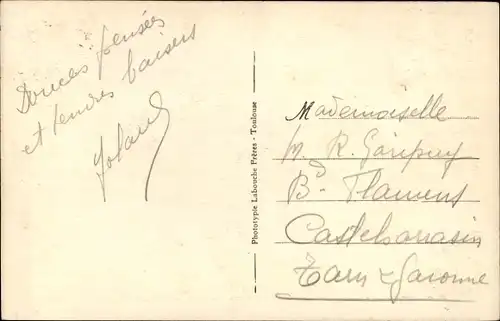 Douces pensées
et tendres baisers
Yoland
Phototypie Labouche Frères - Toulouse
Mademoiselle
M. R. Garipuy
Bd. Flamens
Castelsarrasin
Tarn & Garonne